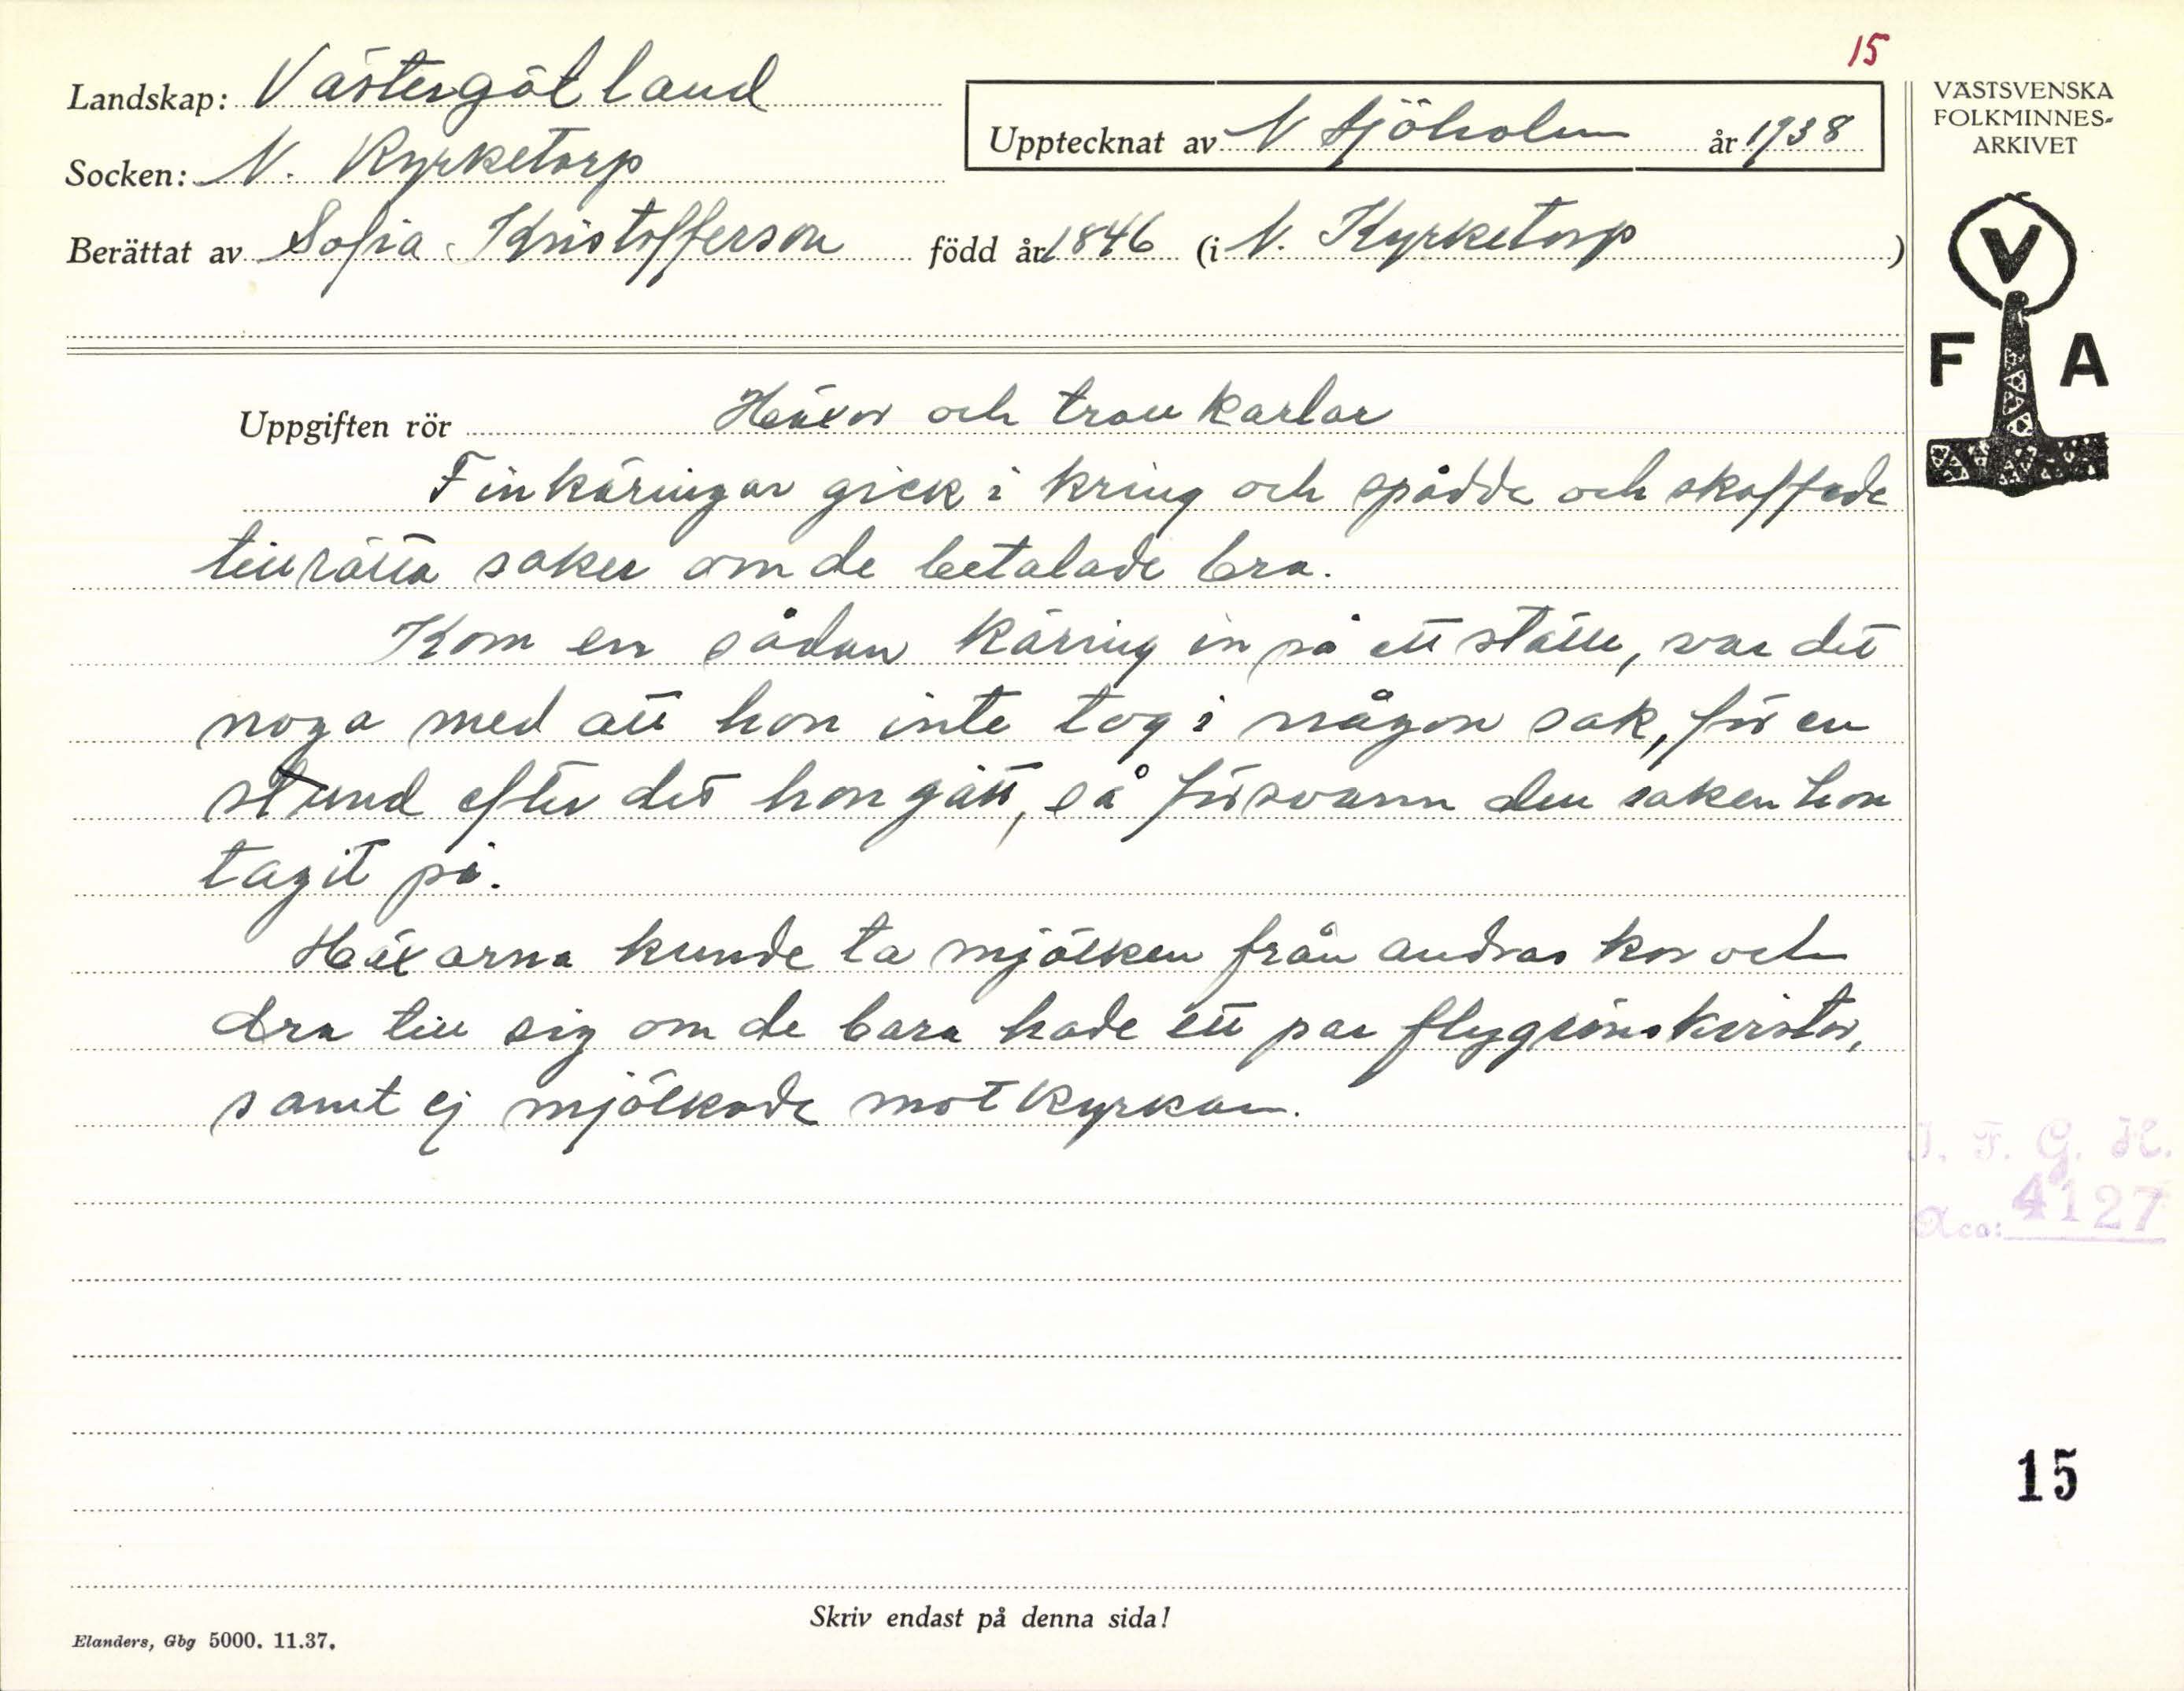 15
Landskap: Västergötland
Upptecknat av N Sjöholm år 1938
VÄSTSVENSKA
FOLKMINNES-
ARKIVET
Socken: N. Kyrketorp
Berättat av Sofia Kristofferson född år 1846 (i N. Kyrketorp)
V
F A
Uppgiften rör Häxor och trollkarlar
Finkäringar gick i kring och spådde och skaffade
tillrätta saker om de betalade bra.
Kom en sådan käring in på ett ställe, var det
noga med att hon inte tog i någon sak, för en
stund efter det hon gått, så försvann den saken hon
tagit på.
Häxorna kunde ta mjölken från andras kor och
dra till sig om de bara hade ett par flygrönskvistor,
samt ej mjölkade mot kyrkan.
I. F. G. H.
Acc: 4127
15
Skriv endast på denna sida!
Elanders, Gbg 5000. 11.37.